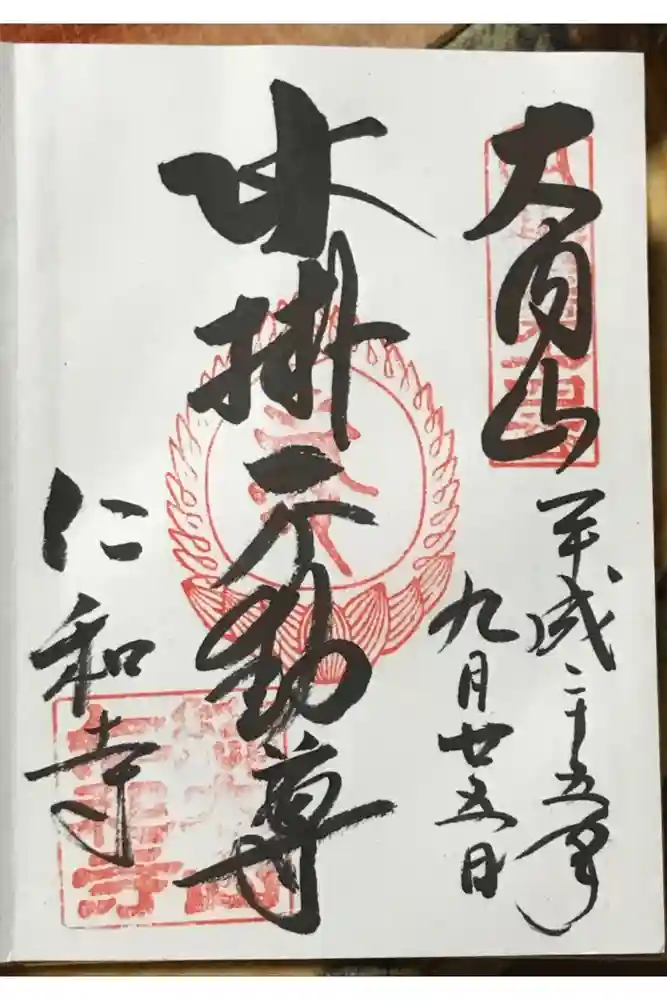 大内山
平成二十五年
九月廿五日
水掛不動尊
仁和寺